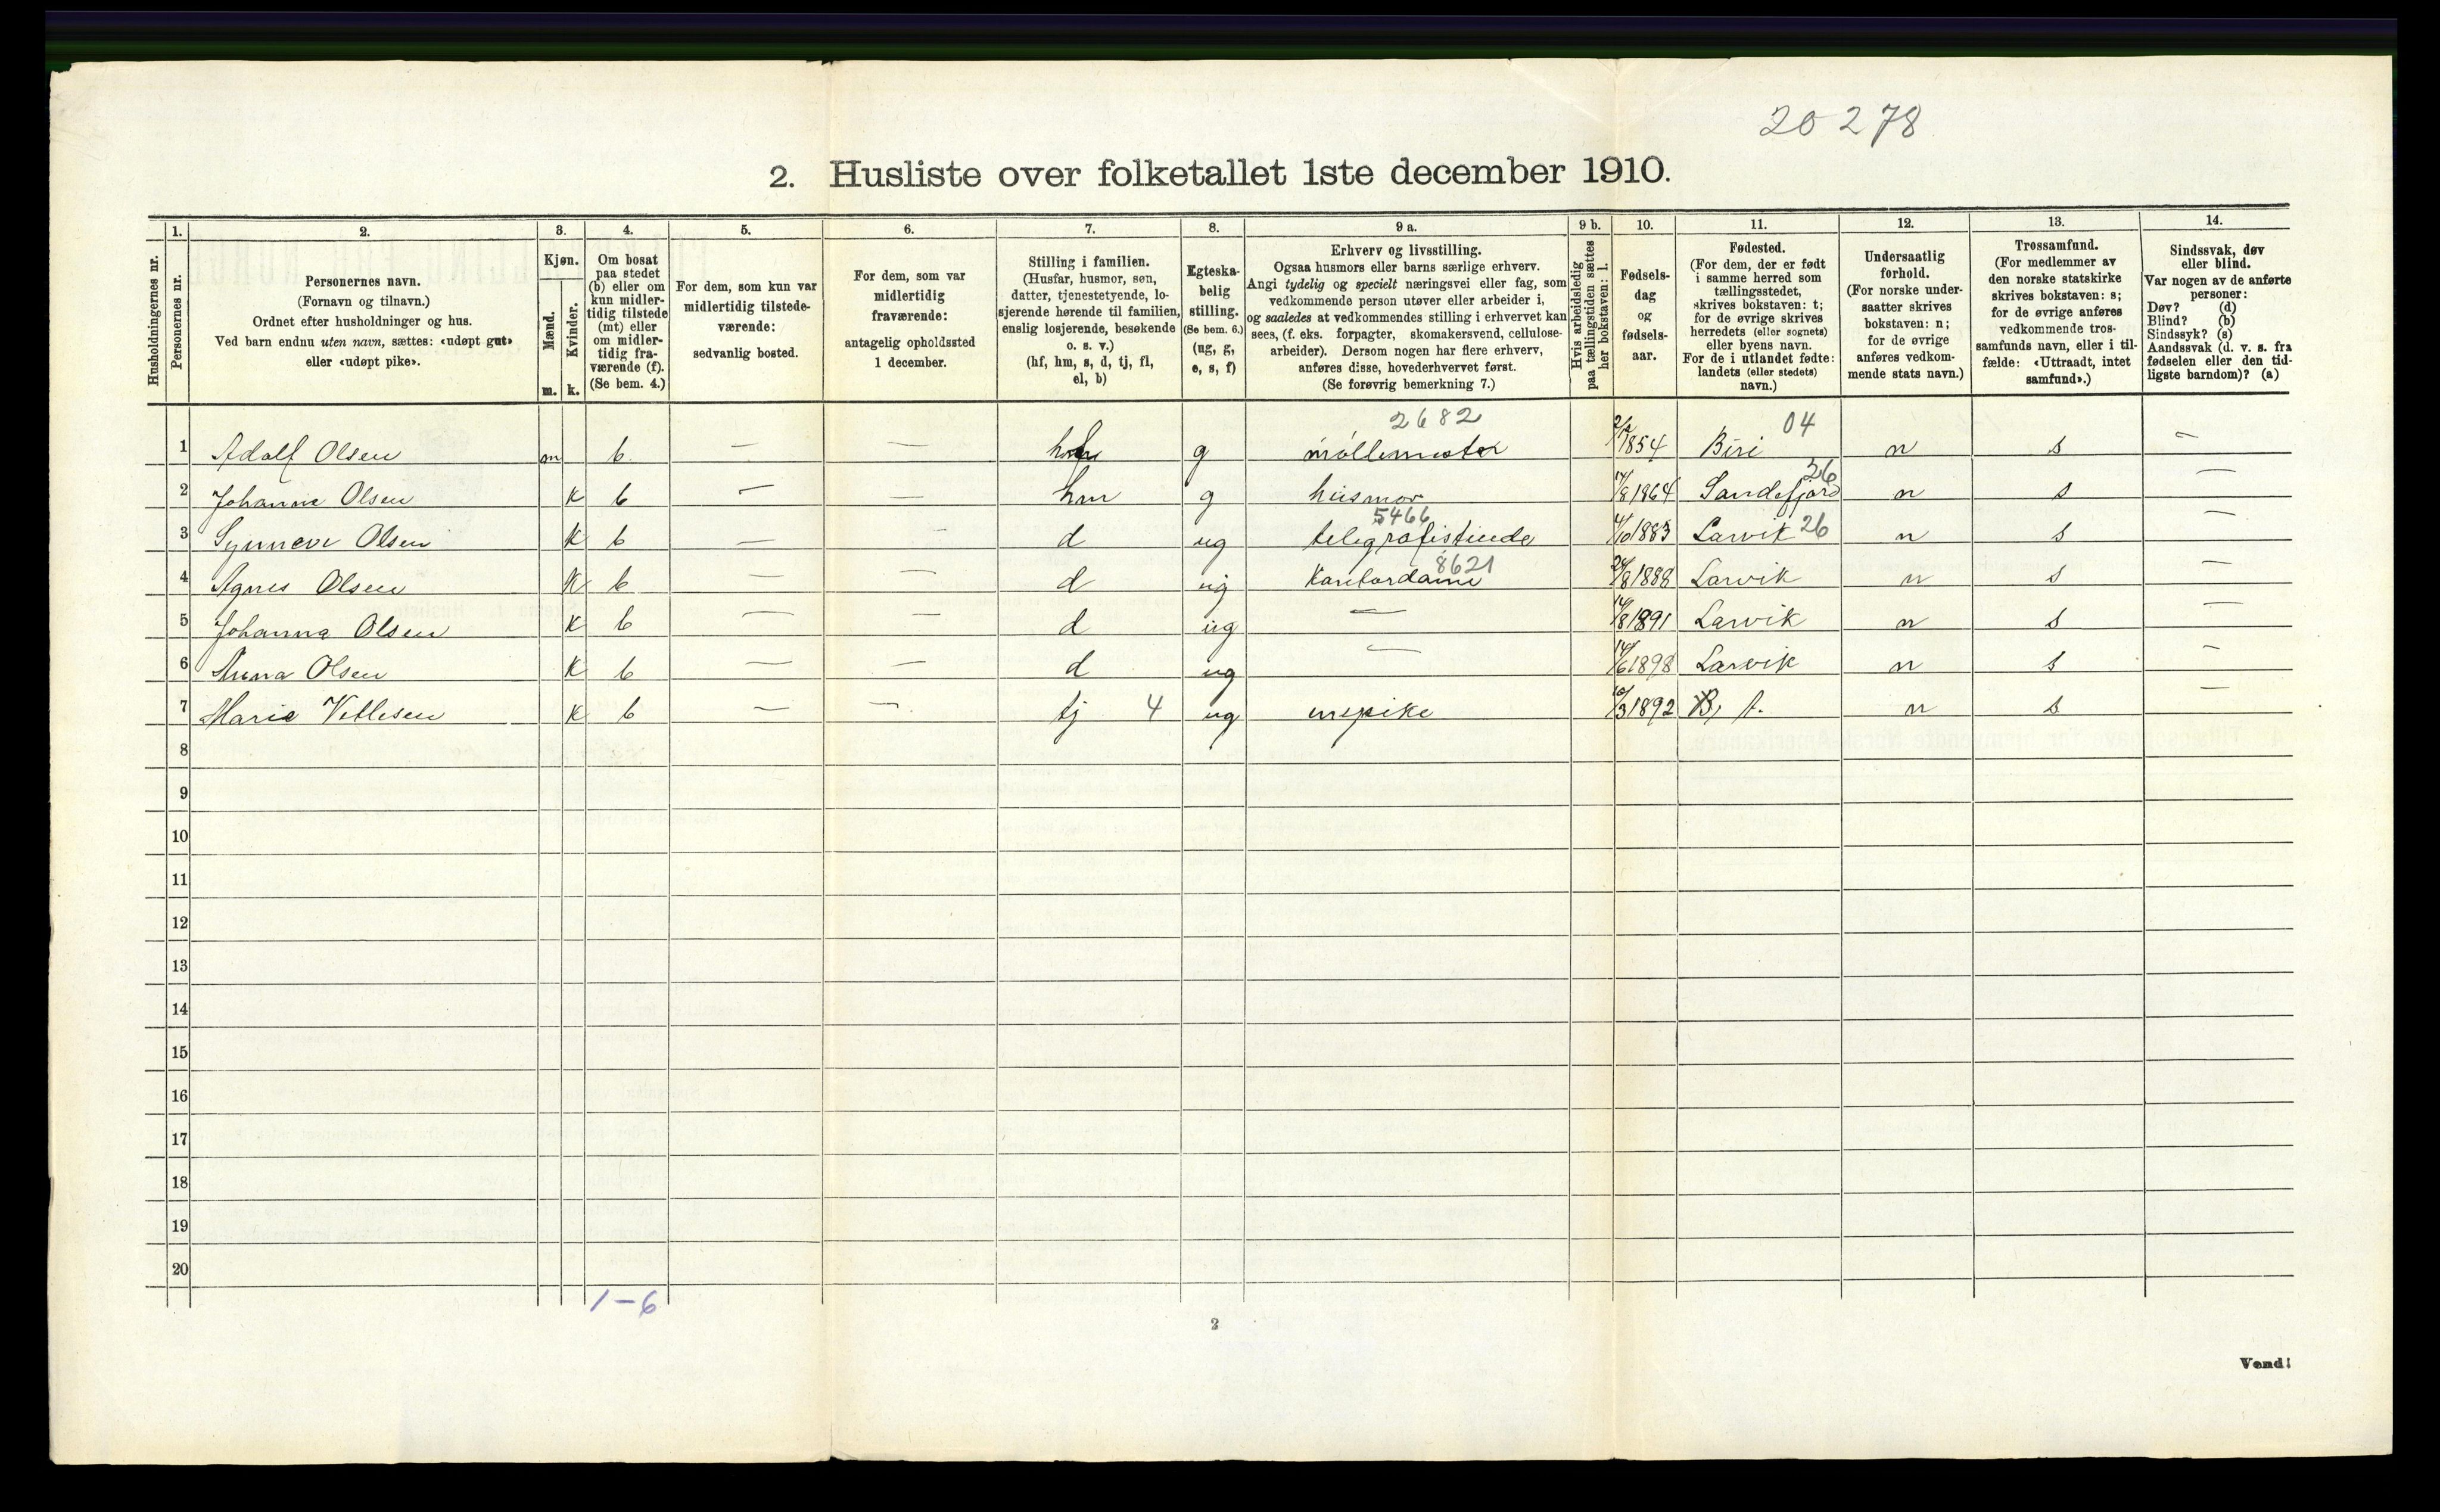 20 278
2. Husliste over folketallet 1ste december 1910.
Husholdningernes nr.
1.
Personernes nr.
2.
Personernes navn.
(Fornavn og tilnavn.)
Ordnet efter husholdninger og hus.
Ved barn endnu uten navn, sættes: «udøpt gut»
eller «udøpt pike».
3.
Kjøn.
Mænd.
m.
Kvinder.
k.
4.
Om bosat
paa stedet
(b) eller om
kun midler-
tidig tilstede
(mt) eller
om midler-
tidig fra-
værende (f).
(Se bem. 4.)
5.
For dem, som kun var
midlertidig tilstede-
værende:
sedvanlig bosted.
6.
For dem, som var
midlertidig
fraværende:
antagelig opholdssted
1 december.
7.
Stilling i familien.
(Husfar, husmor, søn,
datter, tjenestetyende, lo-
sjerende hørende til familien,
enslig losjerende, besøkende
o. s. v.)
(hf, hm, s, d, tj, fl,
el, b)
8.
Egteska-
belig
stilling.
(Se bem. 6.)
(ug, g,
e, s, f)
9 a.
Erhverv og livsstilling.
Ogsaa husmors eller barns særlige erhverv.
Angi tydelig og specielt næringsvei eller fag, som
vedkommende person utøver eller arbeider i,
og saaledes at vedkommendes stilling i erhvervet kan
sees, (f. eks. forpagter, skomakersvend, cellulose-
arbeider). Dersom nogen har flere erhverv,
anføres disse, hovederhvervet først.
(Se forøvrig bemerkning 7.)
9 b.
Hvis arbeidsledig
paa tællingstiden sættes
her bokstaven: l.
10.
Fødsels-
dag
og
fødsels-
aar.
11.
Fødested.
(For dem, der er født
i samme herred som
tællingsstedet,
skrives bokstaven: t;
for de øvrige skrives
herredets (eller sognets)
eller byens navn.
For de i utlandet fødte:
landets (eller stedets)
navn.)
12.
Undersaatlig
forhold.
(For norske under-
saatter skrives
bokstaven: n;
for de øvrige
anføres vedkom-
mende stats navn.)
13.
Trossamfund.
(For medlemmer av
den norske statskirke
skrives bokstaven: s;
for de øvrige anføres
vedkommende tros-
samfunds navn, eller i til-
fælde: «Uttraadt, intet
samfund».)
14.
Sindssvak, døv
eller blind.
Var nogen av de anførte
personer:
Døv? (d)
Blind? (b)
Sindssyk? (s)
Aandssvak (d. v. s. fra
fødselen eller den tid-
ligste barndom)? (a)
2682 04
1 Adolf Olsen m b — — g møllemester 1854 Biri n s —
26
2 Johanne Olsen k b — — hm g husmor 14/8 1864 Sandefjord n s —
5466
3 Synneve Olsen k b — — d ug telegrafistinde 4/10 1883 Larvik 26 n s —
8621
4 Agnes Olsen k b — — d ug Kontordame 24/8 1888 Larvik n s —
5 Johanna Olsen k b — — d ug — 14/8 1891 Larvik n s —
6 Anna Olsen k b — — d ug — 14/6 1898 Larvik n s —
7 Marie Vetlesen k b — — tj 4 ug enepike 10/3 1892 t. n s —
8
9
10
11
12
13
14
15
16
17
18
19
20
1-6
2
Vend!